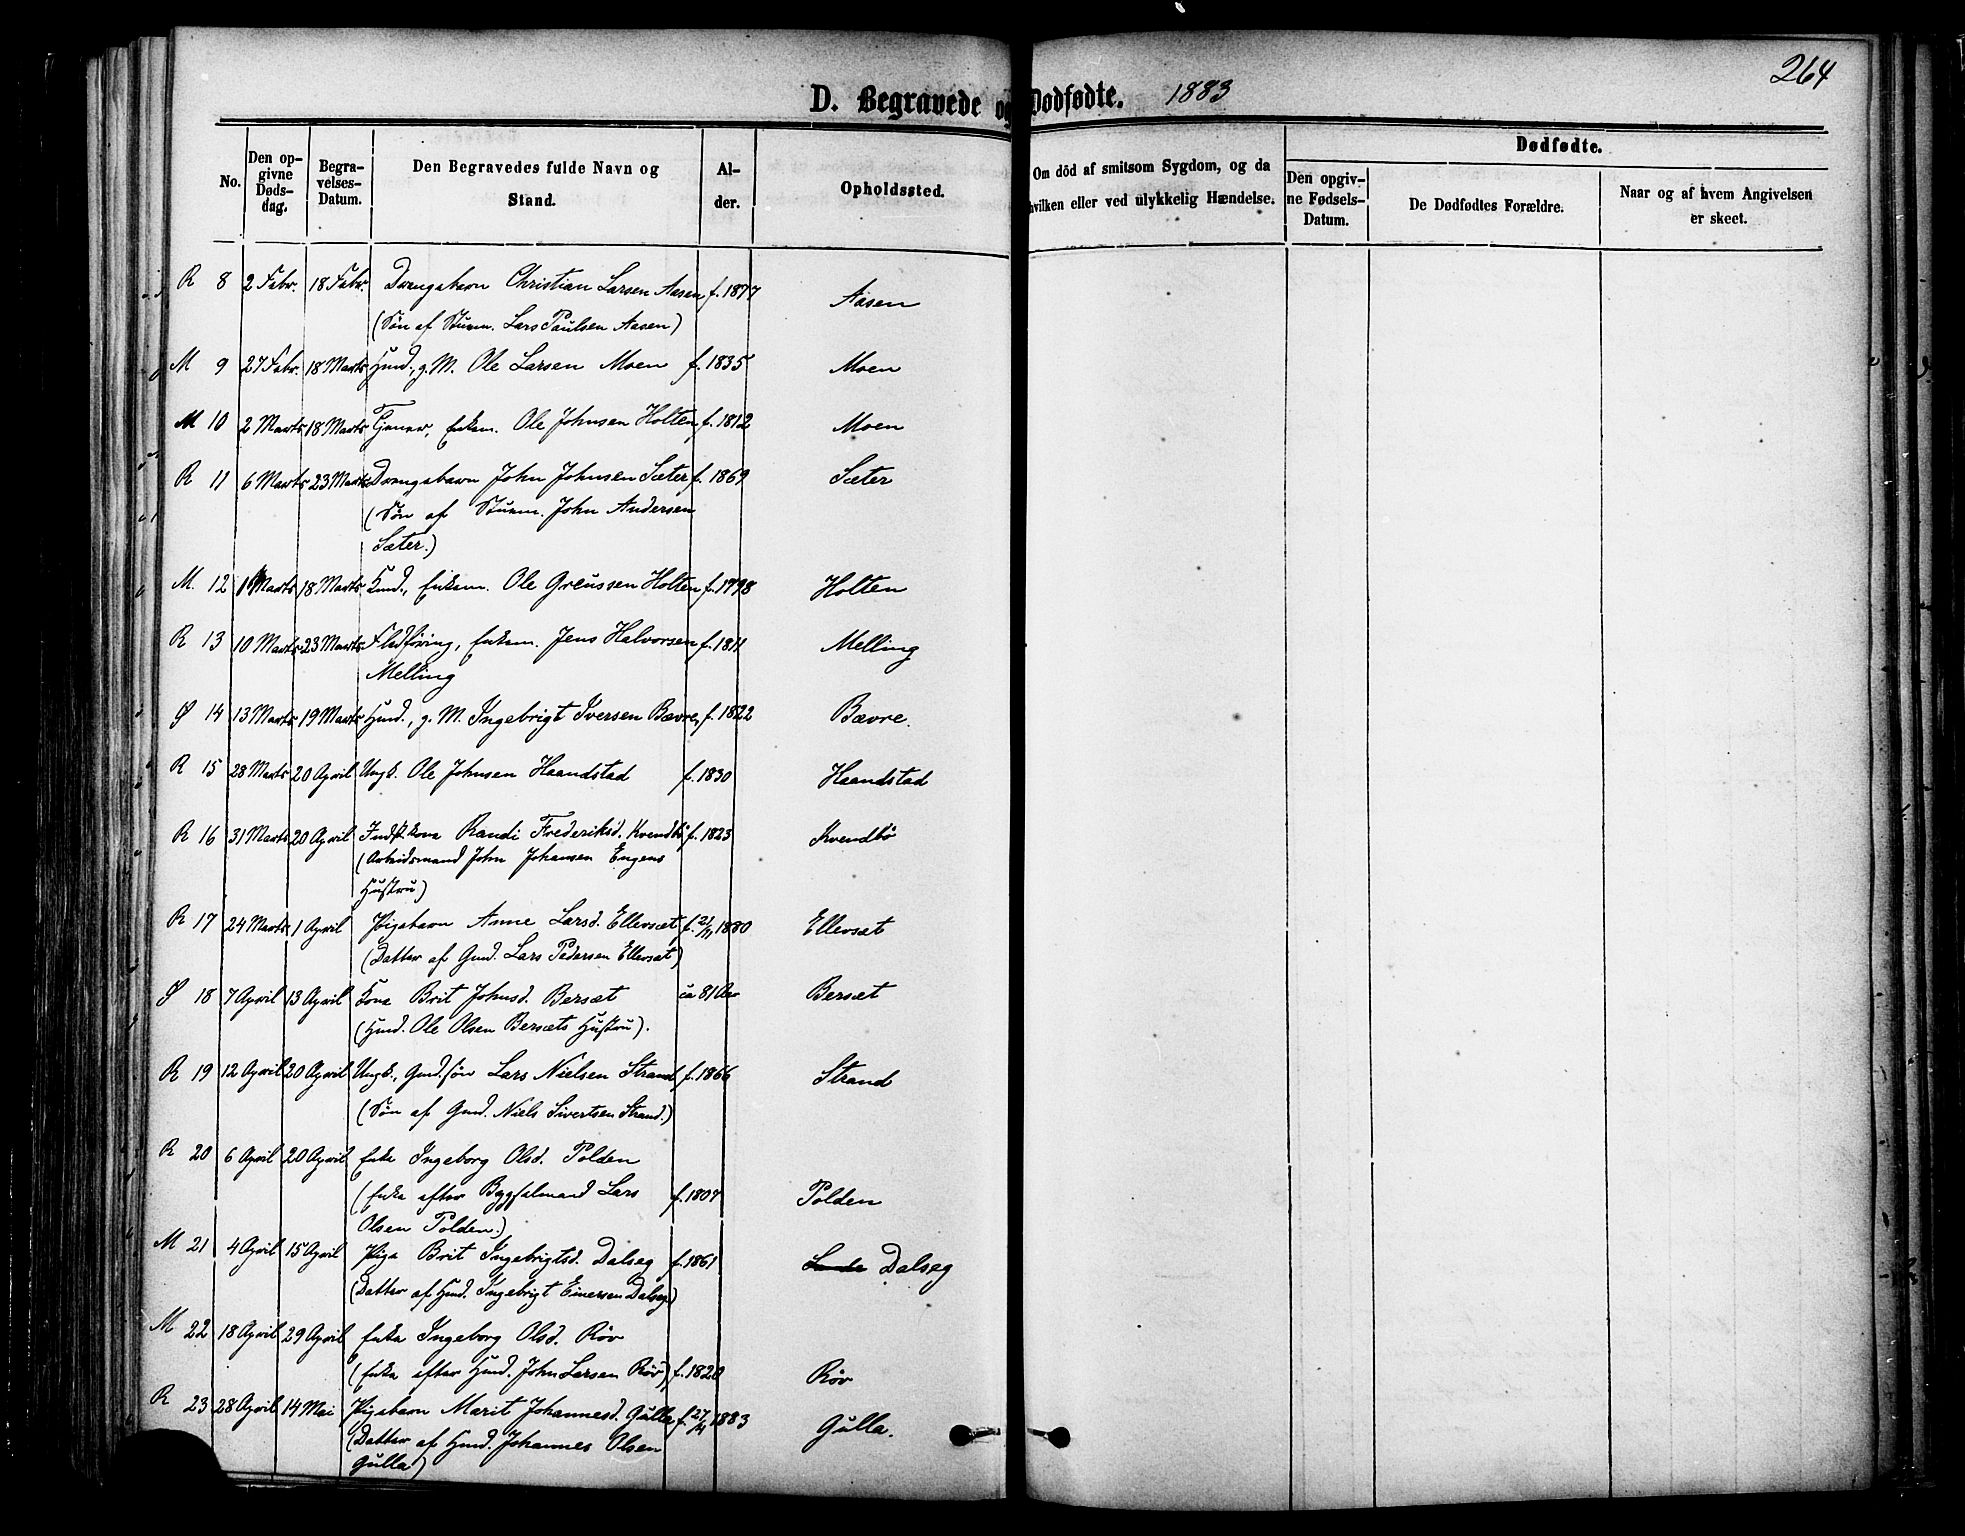 264
D. Begravede og Dødfødte. 1883
No.
Den opgivne Dødsdag.
Begravelses-Datum.
Den Begravedes fulde Navn og Stand.
Alder.
Opholdssted.
Om död af smitsom Sygdom, og da hvilken eller ved ulykkelig Hændelse.
Dødfødte.
Den opgivne Fødsels-Datum.
De Dødfødtes Forældre.
Naar og af hvem Angivelsen er skeet.
R 8 2 Febr. 18 Febr. Drengebarn Christian Larsen Aasen f. 1877 Aasen
(Søn af Lars Paulsen Aasen)
M 9 27 Febr. 18 Marts g. M. Ole Larsen Moen f. 1835 Moen
M 10 2 Marts 18 Marts Enkem. Ole Johnsen Holten, f. 1812 Moen
R 11 6 Marts 23 Marts Drengebarn John Johnsen Sæter f. 1869 Sæter
(Søn af John Andersen
Sæter.)
M. 12 Marts 18 Marts Enkem. Ole Greussen Holten f. 1798 Holten
R 13 10 Marts 23 Marts Fledføring, Enkem. Jens Halvorsen f. 1811 Melling
Melling
S 14 13 Marts 19 Marts Husmd., g. M. Ingebrigt Iversen Bævre, f. 1822 Bævre.
R 15 28 Marts 20 April Ungk. Ole Johnsen Haandstad f. 1830 Haandstad
R 16 31 Marts 20 April Kone Randi Frederiksd. Kvendbø f. 1823 Kvendbø
(Arbeidsmand John Johansen Engens
Hustru)
R 17 24 Marts 1 April Pigebarn Anne Larsd. Ellevsæt f. 21/11 1880 Ellevsæt
(Datter af Gmd. Lars Pedersen Ellevsæt)
S 18 7 April 13 April Kone Brit Johnsd. Bersæt ca 81 Aar Bersæt
(Hmd. Ole Olsen Bersæts Hustru).
R 19 12 April 20 April Ungk., Gmd.søn Lars Nielsen Strand f. 1866 Strand
(Søn af Gmd. Niels Sivertsen Strand.)
R 20 6 April 20 April Enke Ingeborg Olsd. Polden
(Enke efter Bygselmand Lars f. 1807 Polden
Olsen Polden.)
M 21 4 April 15 April Pige Brit Ingebrigtsd. Dalseg f. 1861 Dalseg
(Datter af Hmd. Ingebrigt Einersen Dalseg)
M 22 18 April 29 April Enke Ingeborg Olsd. Røv
(Enke efter Hmd. John Larsen Røv) f. 1820 Røv
R 23 28 April 14 Mai Pigebarn Marit Johannesd. Gulla f. 27/4 1883 Gulla.
(Datter af Hmd. Johannes Olsen
Gulla)